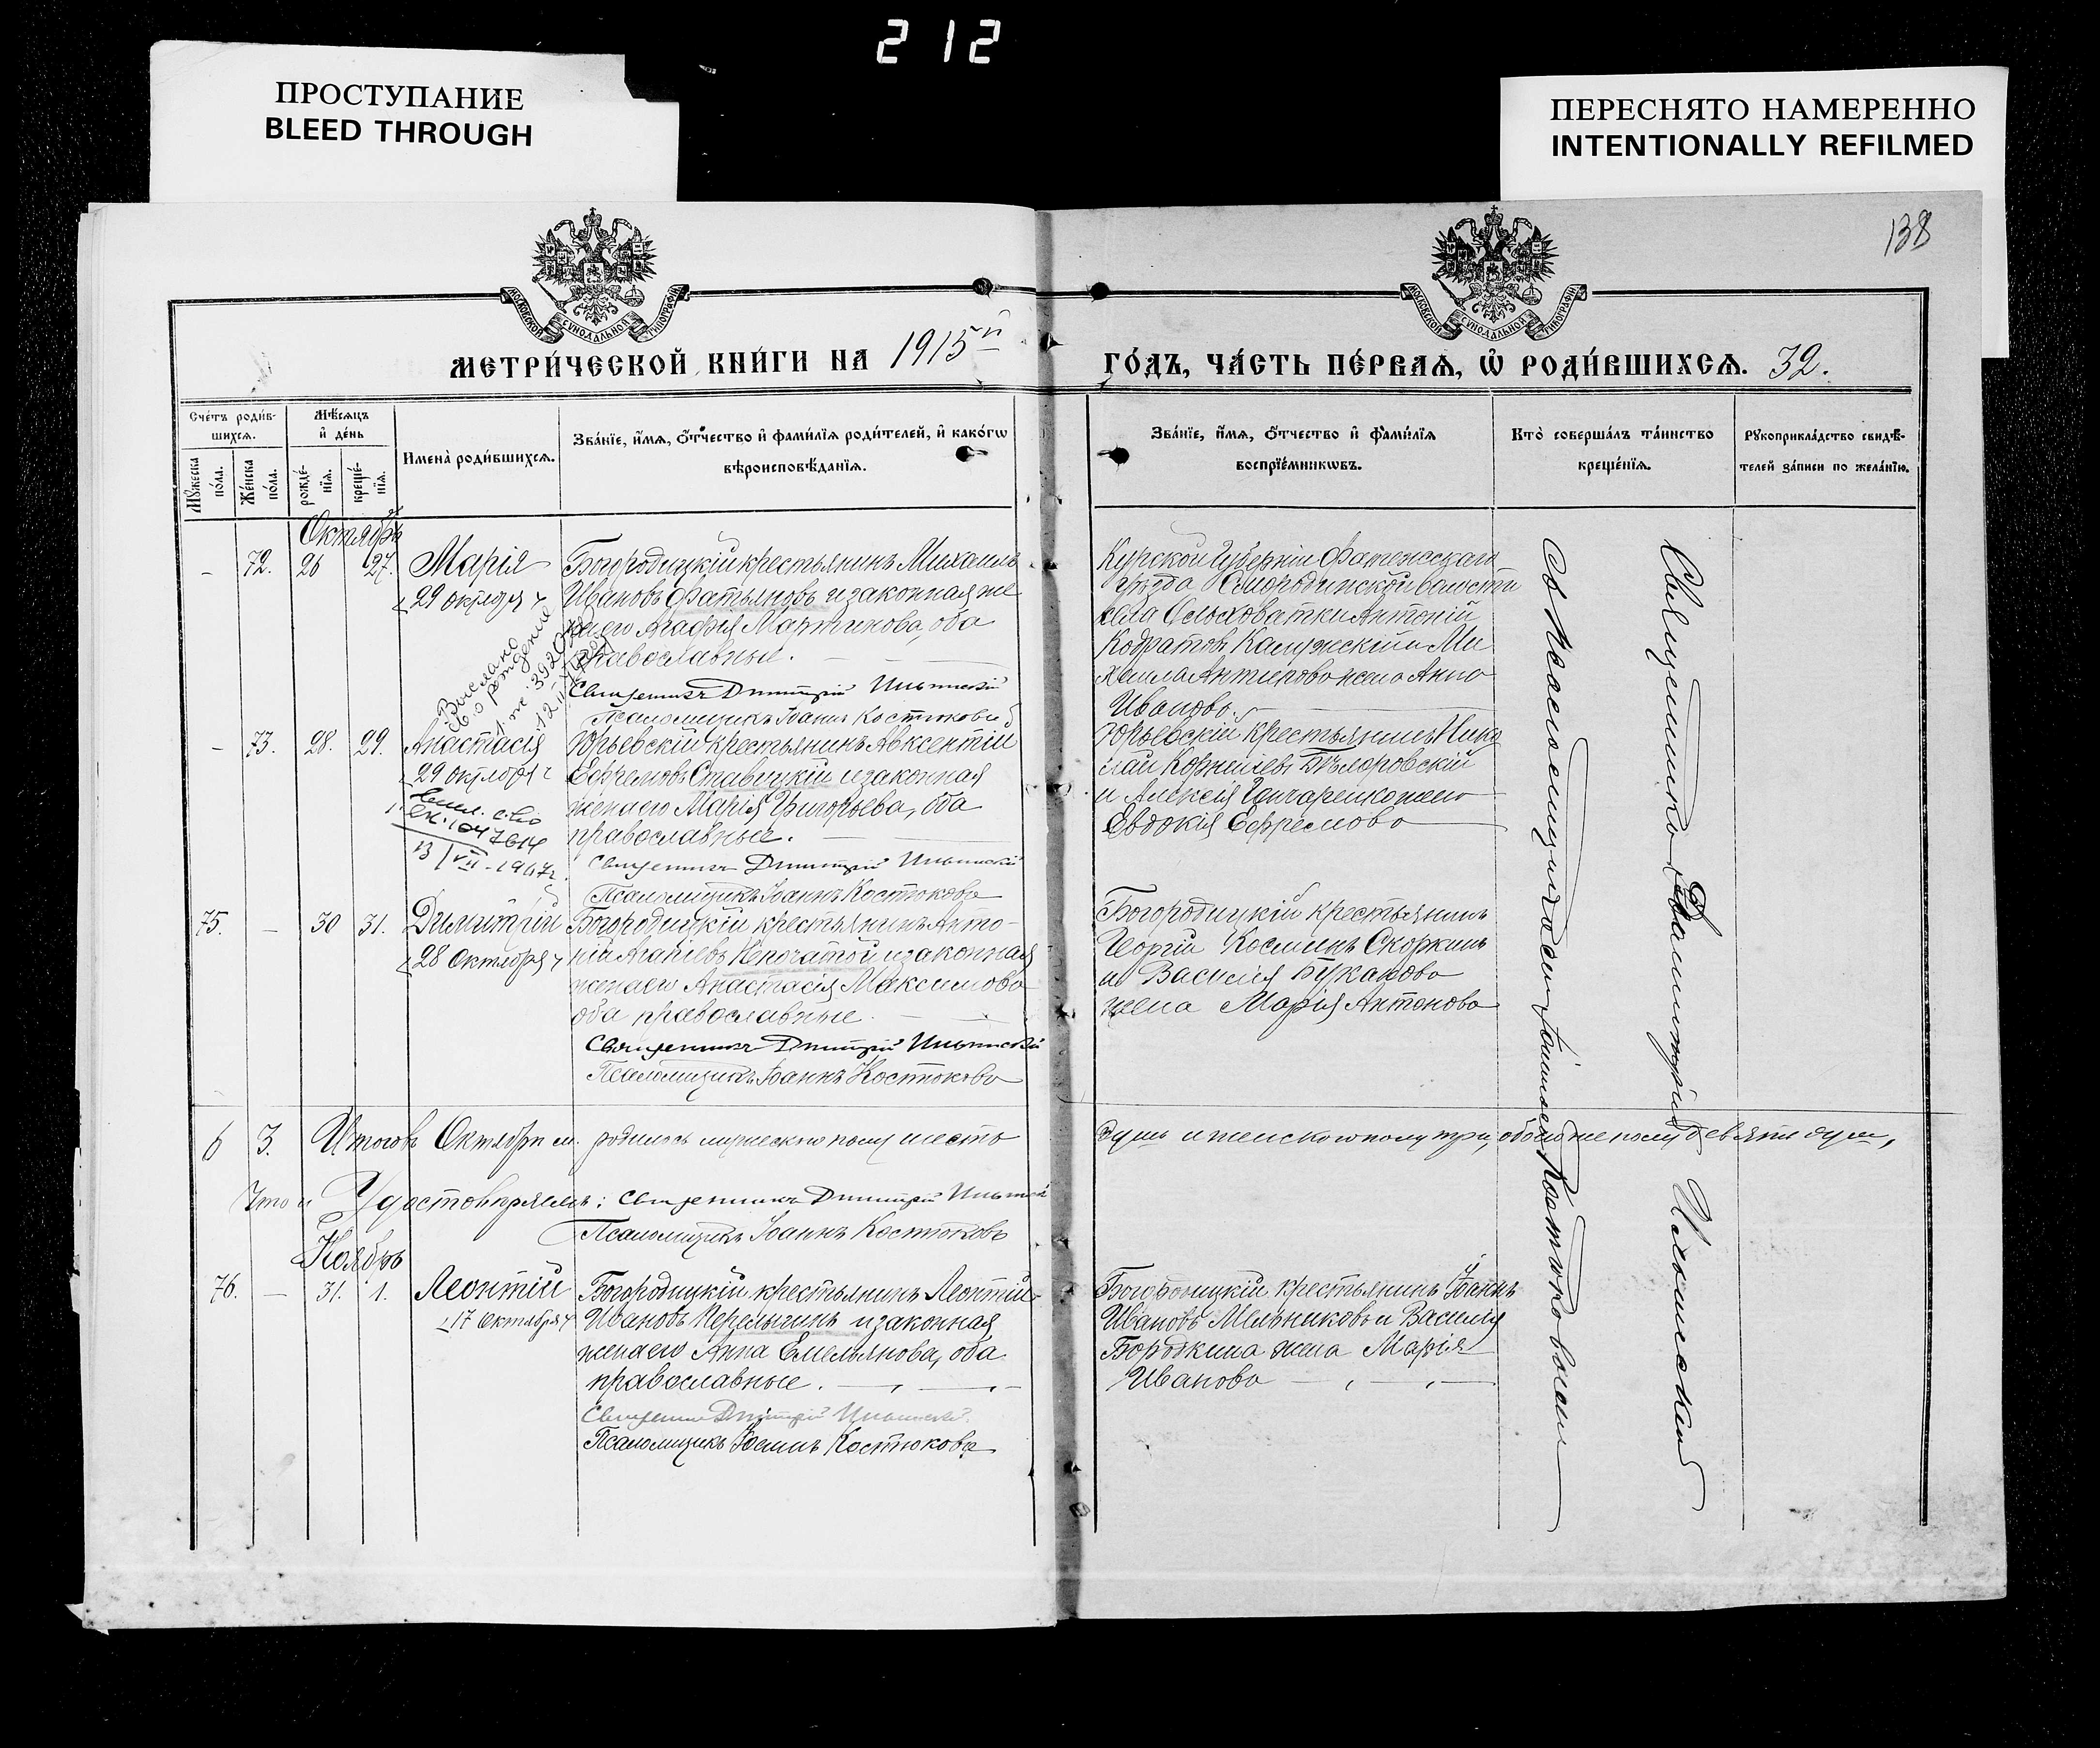 212
ПРОСТУПАНИЕ
BLEED THROUGH
ПЕРЕСНЯТО НАМЕРЕННО
INTENTIONALLY REFILMED
138
МОСКОВСКОЙ СѴНОДАЛЬНОЙ ТИПОГРАФІИ
МОСКОВСКОЙ СѴНОДАЛЬНОЙ ТИПОГРАФІИ
МЕТРИ́ЧЕСКОЙ КНИ́ГИ НА 1915й
ГО́ДЪ, ЧА́СТЬ ПЕ́РВАѦ, Ѽ РОДИ́ВШИХСѦ. 32.
Сче́тъ роди́в-
шихсѧ.
Мꙋ́жеска по́ла.
Же́нска по́ла.
Мѣ́сѧцъ
и҆ де́нь
рожде́-
нїѧ.
креще́-
нїѧ.
И҆мена̀ роди́вшихсѧ.
Зва́нїе, и҆́мѧ, ѻ҆́тчество и҆ фами́лїѧ роди́телей, и҆ како́гѡ
вѣроисповѣ́данїѧ.
Зва́нїе, и҆́мѧ, ѻ҆́тчество и҆ фами́лїѧ
воспрїе́мникѡвъ.
Кто̀ соверша́лъ та́инство
креще́нїѧ.
Рꙋкоприкла́дство свидѣ́-
телей за́писи по жела́нїю.
Октябрь
- 72. 26 27. Марія
29 октября
Богородицкій крестьянинъ Михаилъ
Ивановъ Фатьяновъ и законная же
на его Агафія Мартинова, оба
православные.
Священникъ Дмитрій Ильинскій
Псаломщикъ Іоаннъ Костюковъ
Выслано
св. о рождении
Курской губерніи Фатежскаго
уѣзда Смородинской волости
села Ольховатки Антоній
Кодратов Калужскій и Ми
хаила Антипова жена Анна
Иванова.
- 73. 28. 29. Анастасія
29 октября
13/VII-1947г.
Юрьевскій крестьянинъ Авксентій
Ефремовъ Ставицкій и законная
жена его Марія Григорьева, оба
православные.
Священникъ Дмитрій Ильинскій
Псаломщикъ Іоаннъ Костюковъ
Юрьевскій крестьянинъ Нико
лай Корнеевъ
и Алексія Гончаренко жена
Евдокія Ефремова
75. - 30 31. Димитрій
28 Октября
Богородицкій крестьянинъ Анто-
ній Агапіевъ Непочатой и законная
жена его Анастасія Максимова
оба православные.
Священникъ Дмитрій Ильинскій
Псаломщикъ Іоаннъ Костюковъ
Богородицкій крестьянинъ
Георгій Косминъ Скоркинъ
и Василія Буханова
жена Марія Антонова
6 3. Итого въ Октябрѣ м. родилось мужескаго полу шесть
душъ и женскаго полу три, обоего же полу девять душъ,
Что и Удостовѣряемъ: Священникъ Дмитрій Ильинскій
Псаломщикъ Іоаннъ Костюковъ
Ноябрь
76. - 31. 1. Леонтій
17 Октября
Богородицкій крестьянинъ Леонтій
Ивановъ Перелыгинъ и законная
жена его Анна Емельянова, оба
православные.
Священникъ Дмитрій Ильинскій
Псаломщикъ Іоаннъ Костюковъ
Богородицкій крестьянинъ Іоаннъ
Ивановъ Мельниковъ и Василія
Бородкина жена Марія
Иванова
Священникъ Димитрій Ильинскій
съ Псаломщикомъ Іоанномъ Костюковымъ